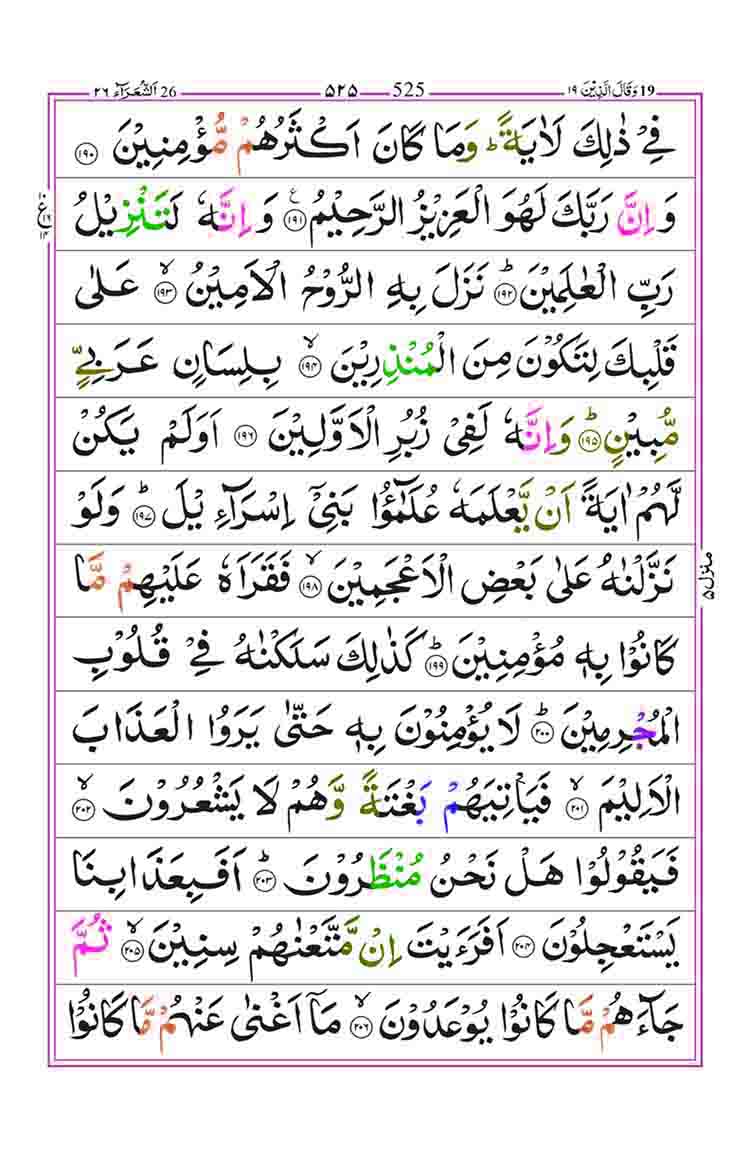 19 وَقَالَ الَّذِيْنَ ١٩ 525 ٥٢٥ 26 اَلشُّعَرَآء ٢٦
فِيْ ذٰلِكَ لَاٰيَةًؕ وَمَا كَانَ اَكْثَرُهُمْ مُّؤْمِنِيْنَ ۝١٩٠
وَ اِنَّ رَبَّكَ لَهُوَ الْعَزِيْزُ الرَّحِيْمُ ۝١٩١ۧ وَ اِنَّهٗ لَتَنْزِيْلُ
رَبِّ الْعٰلَمِيْنَ ۝١٩٢ؕ نَزَلَ بِهِ الرُّوْحُ الْاَمِيْنُ ۝١٩٣ۙ عَلٰى
قَلْبِكَ لِتَكُوْنَ مِنَ الْمُنْذِرِيْنَ ۝١٩٤ۙ بِلِسَانٍ عَرَبِيٍّ
مُّبِيْنٍ ۝١٩٥ؕ وَاِنَّهٗ لَفِيْ زُبُرِ الْاَوَّلِيْنَ ۝١٩٦ اَوَلَمْ يَكُنْ
لَّهُمْ اٰيَةً اَنْ يَّعْلَمَهٗ عُلَمٰٓؤُا بَنِيْٓ اِسْرَآءِيْلَ ۝١٩٧ؕ وَلَوْ
نَزَّلْنٰهُ عَلٰى بَعْضِ الْاَعْجَمِيْنَ ۝١٩٨ۙ فَقَرَاَهٗ عَلَيْهِمْ مَّا
كَانُوْا بِهٖ مُؤْمِنِيْنَ ۝١٩٩ؕ كَذٰلِكَ سَلَكْنٰهُ فِيْ قُلُوْبِ
الْمُجْرِمِيْنَ ۝٢٠٠ؕ لَا يُؤْمِنُوْنَ بِهٖ حَتّٰى يَرَوُا الْعَذَابَ
الْاَلِيْمَ ۝٢٠١ۙ فَيَاْتِيَهُمْ بَغْتَةً وَّهُمْ لَا يَشْعُرُوْنَ ۝٢٠٢ۙ
فَيَقُوْلُوْا هَلْ نَحْنُ مُنْظَرُوْنَ ۝٢٠٣ؕ اَفَبِعَذَابِنَا
يَسْتَعْجِلُوْنَ ۝٢٠٤ اَفَرَءَيْتَ اِنْ مَّتَّعْنٰهُمْ سِنِيْنَ ۝٢٠٥ۙ ثُمَّ
جَآءَهُمْ مَّا كَانُوْا يُوْعَدُوْنَ ۝٢٠٦ۙ مَآ اَغْنٰى عَنْهُمْ مَّا كَانُوْا
منزل ٥